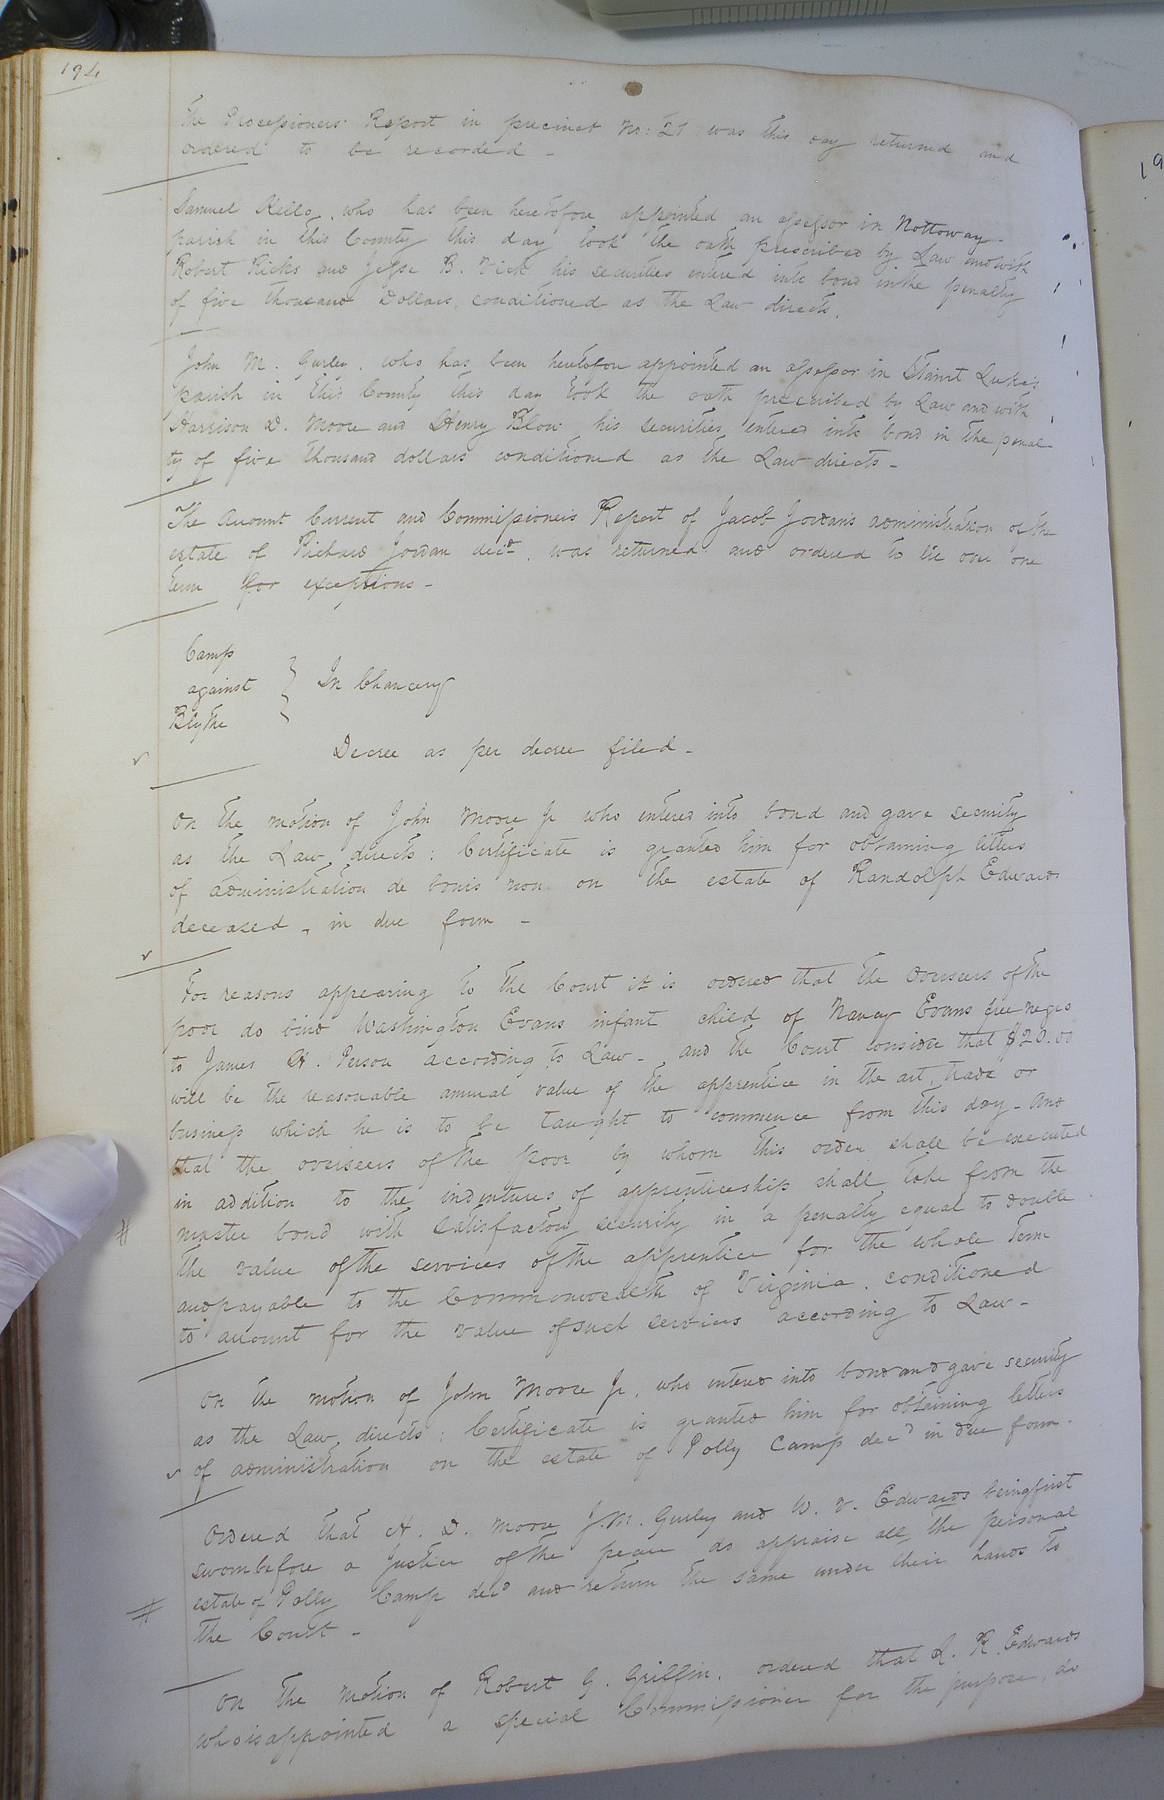 194
The Processioners Report in precinct No: 21 was this day returned and
ordered to be recorded -
Samuel Kello, who has been heretofore appointed an assessor in Nottoway
parish in this County this day took the oath prescribed by Law and with
Robert Ricks and Jesse B. Vick his securities entered into bond in the penalty
of five thousand Dollars, conditioned as the Law directs.
John M. Gurley, who has been heretofore appointed an assessor in Saint Lukes
parish in this County this day took the oath prescribed by Law and with
Harrison D. Moore and Henry Blow his securities entered into bond in the penal-
ty of five thousand dollars conditioned as the Law directs -
The Account Current and Commissioners Report of Jacob Jordan's administration of the
estate of Richard Jordan decd., was returned and ordered to lie over one
term for exceptions -
Camp
against } In Chancery
Blythe
Decree as per decree filed -
On the motion of John Moore Jr who entered into bond and gave security
as the Law directs: Certificate is granted him for obtaining letters
of administration de bonis non on the estate of Randolph Edwards
deceased, in due form -
For reasons appearing to the Court it is ordered that the Overseers of the
poor do bind Washington Evans infant child of Nancy Evans free negro
to James H. Person according to Law - and the Court consider that $20.00
will be the reasonable annual value of the apprentice in the art, trade or
business which he is to be taught to commence from this day - And
that the overseers of the poor by whom this order shall be executed
in addition to the indentures of apprenticeship shall take from the
# master bond with satisfactory security in a penalty equal to double
the value of the services of the apprentice for the whole term
and payable to the Commonwealth of Virginia, conditioned
to account for the value of such services according to Law -
On the motion of John Moore Jr, who entered into bond and gave security
as the Law directs: Certificate is granted him for obtaining letters
of administration on the estate of Polly Camp decd in due form.
Ordered that H. D. Moore J. M. Gurley and W. V. Edwards being first
sworn before a Justice of the peace do appraise all the personal
# estate of Polly Camp decd and return the same under their hands to
the Court -
On the motion of Robert G. Griffin, ordered that L. R. Edwards
who is appointed a special Commissioner for the purpose, do